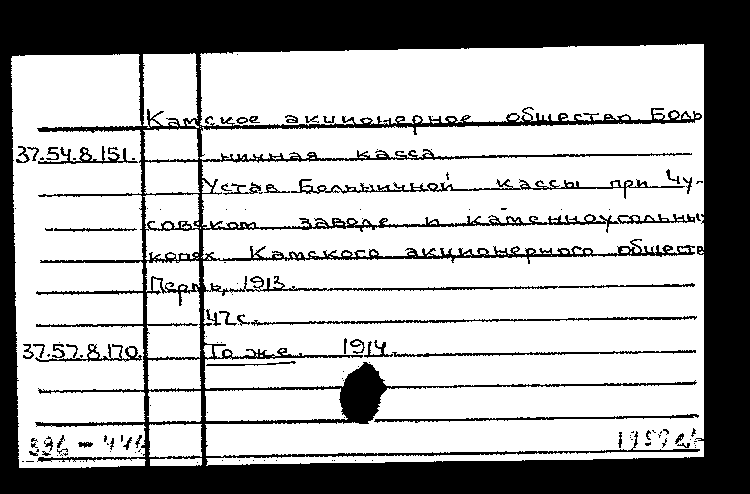 Камское акционерное общество. Боль
37.54.8.151. ничная касса.
Устав Больничной кассы при Чу-
совском заводе и каменноугольных
копях Камского акционерного обществ
Пермь, 1913.
47с.
37.57.8.170. То же. 1914.